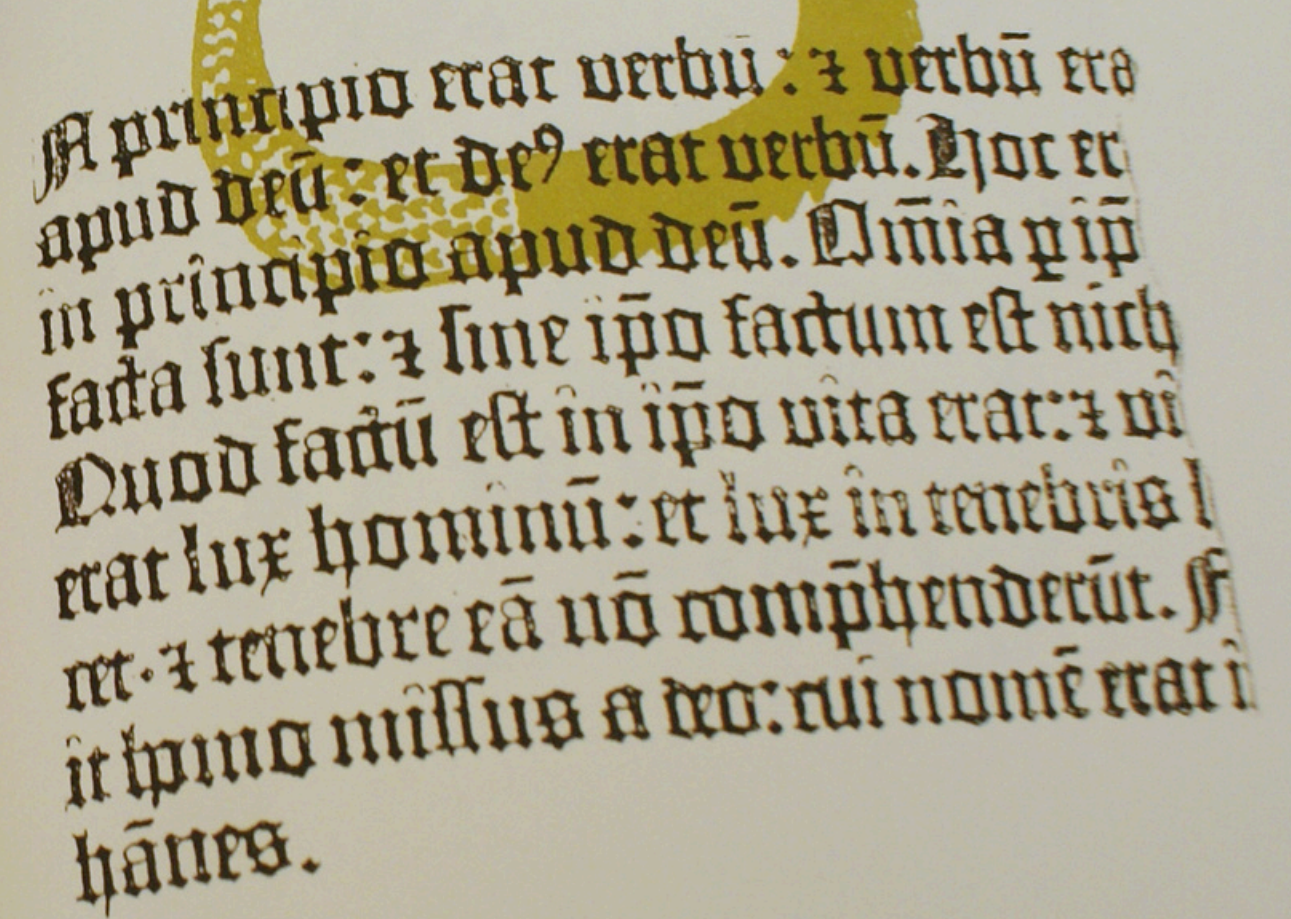 A principio erat verbū : ⁊ verbū era
apud deū : et deꝰ erat verbū. Hoc er
in principio apud deū. Om̄ia ꝑ ip̄
facta sunt : ⁊ sine ip̄o factum est nich
Quod factū est in ip̄o vita erat : ⁊ vi
erat lux hominū : et lux in tenebris l
cet · ⁊ tenebre eā nō comp̄henderūt. F
it hōino missus a deo : cui nomē erat i
hānes.